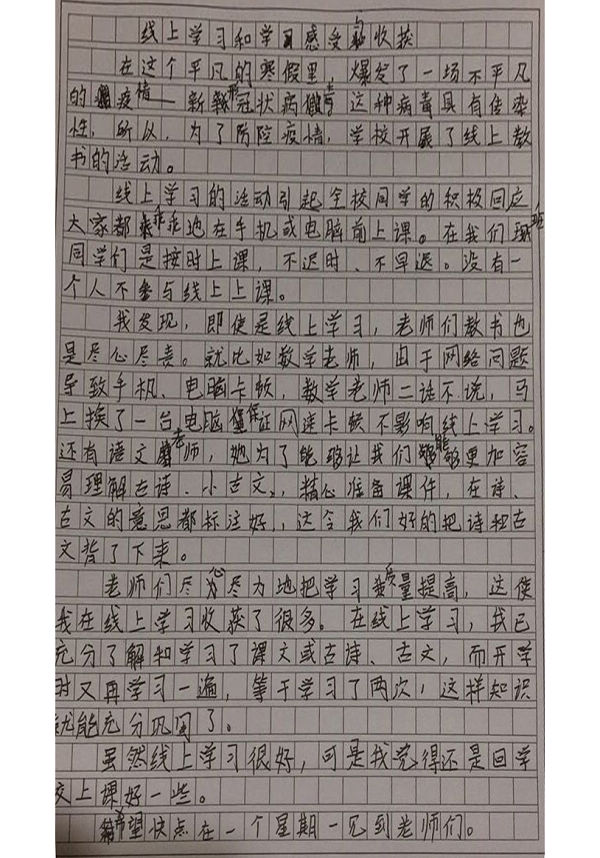 线上学习和学习感受和收获
在这个平凡的寒假里，爆发了一场不平凡
的疫情——新形冠状病毒，这种病毒具有传染
性，所以，为了防控疫情，学校开展了线上教
书的活动。
线上学习的活动引起全校同学的积极回应，
大家都乖乖地在手机或电脑前上课。在我们班，
同学们是按时上课，不迟时、不早退。没有一
个人不参与线上上课。
我发现，即使是线上学习，老师们教书也
是尽心尽责。就比如数学老师，由于网络问题
导致手机、电脑卡顿，数学老师二话不说，马
上换了一台电脑，保证网速卡顿不影响线上学习。
还有语文老师，她为了能够让我们能够更加容
易理解古诗、小古文，精心准备课件，在诗、
古文的意思都标注好，这令我们好的把诗和古
文背了下来。
老师们尽心尽力地把学习质量提高，这使
我在线上学习收获了很多。在线上学习，我已
充分了解和学习了课文或古诗、古文，而开学
时又再学习一遍，等于学习了两次，这样知识
就能充分巩固了。
虽然线上学习很好，可是我觉得还是回学
校上课好一些。
希望快点在一个星期一见到老师们。